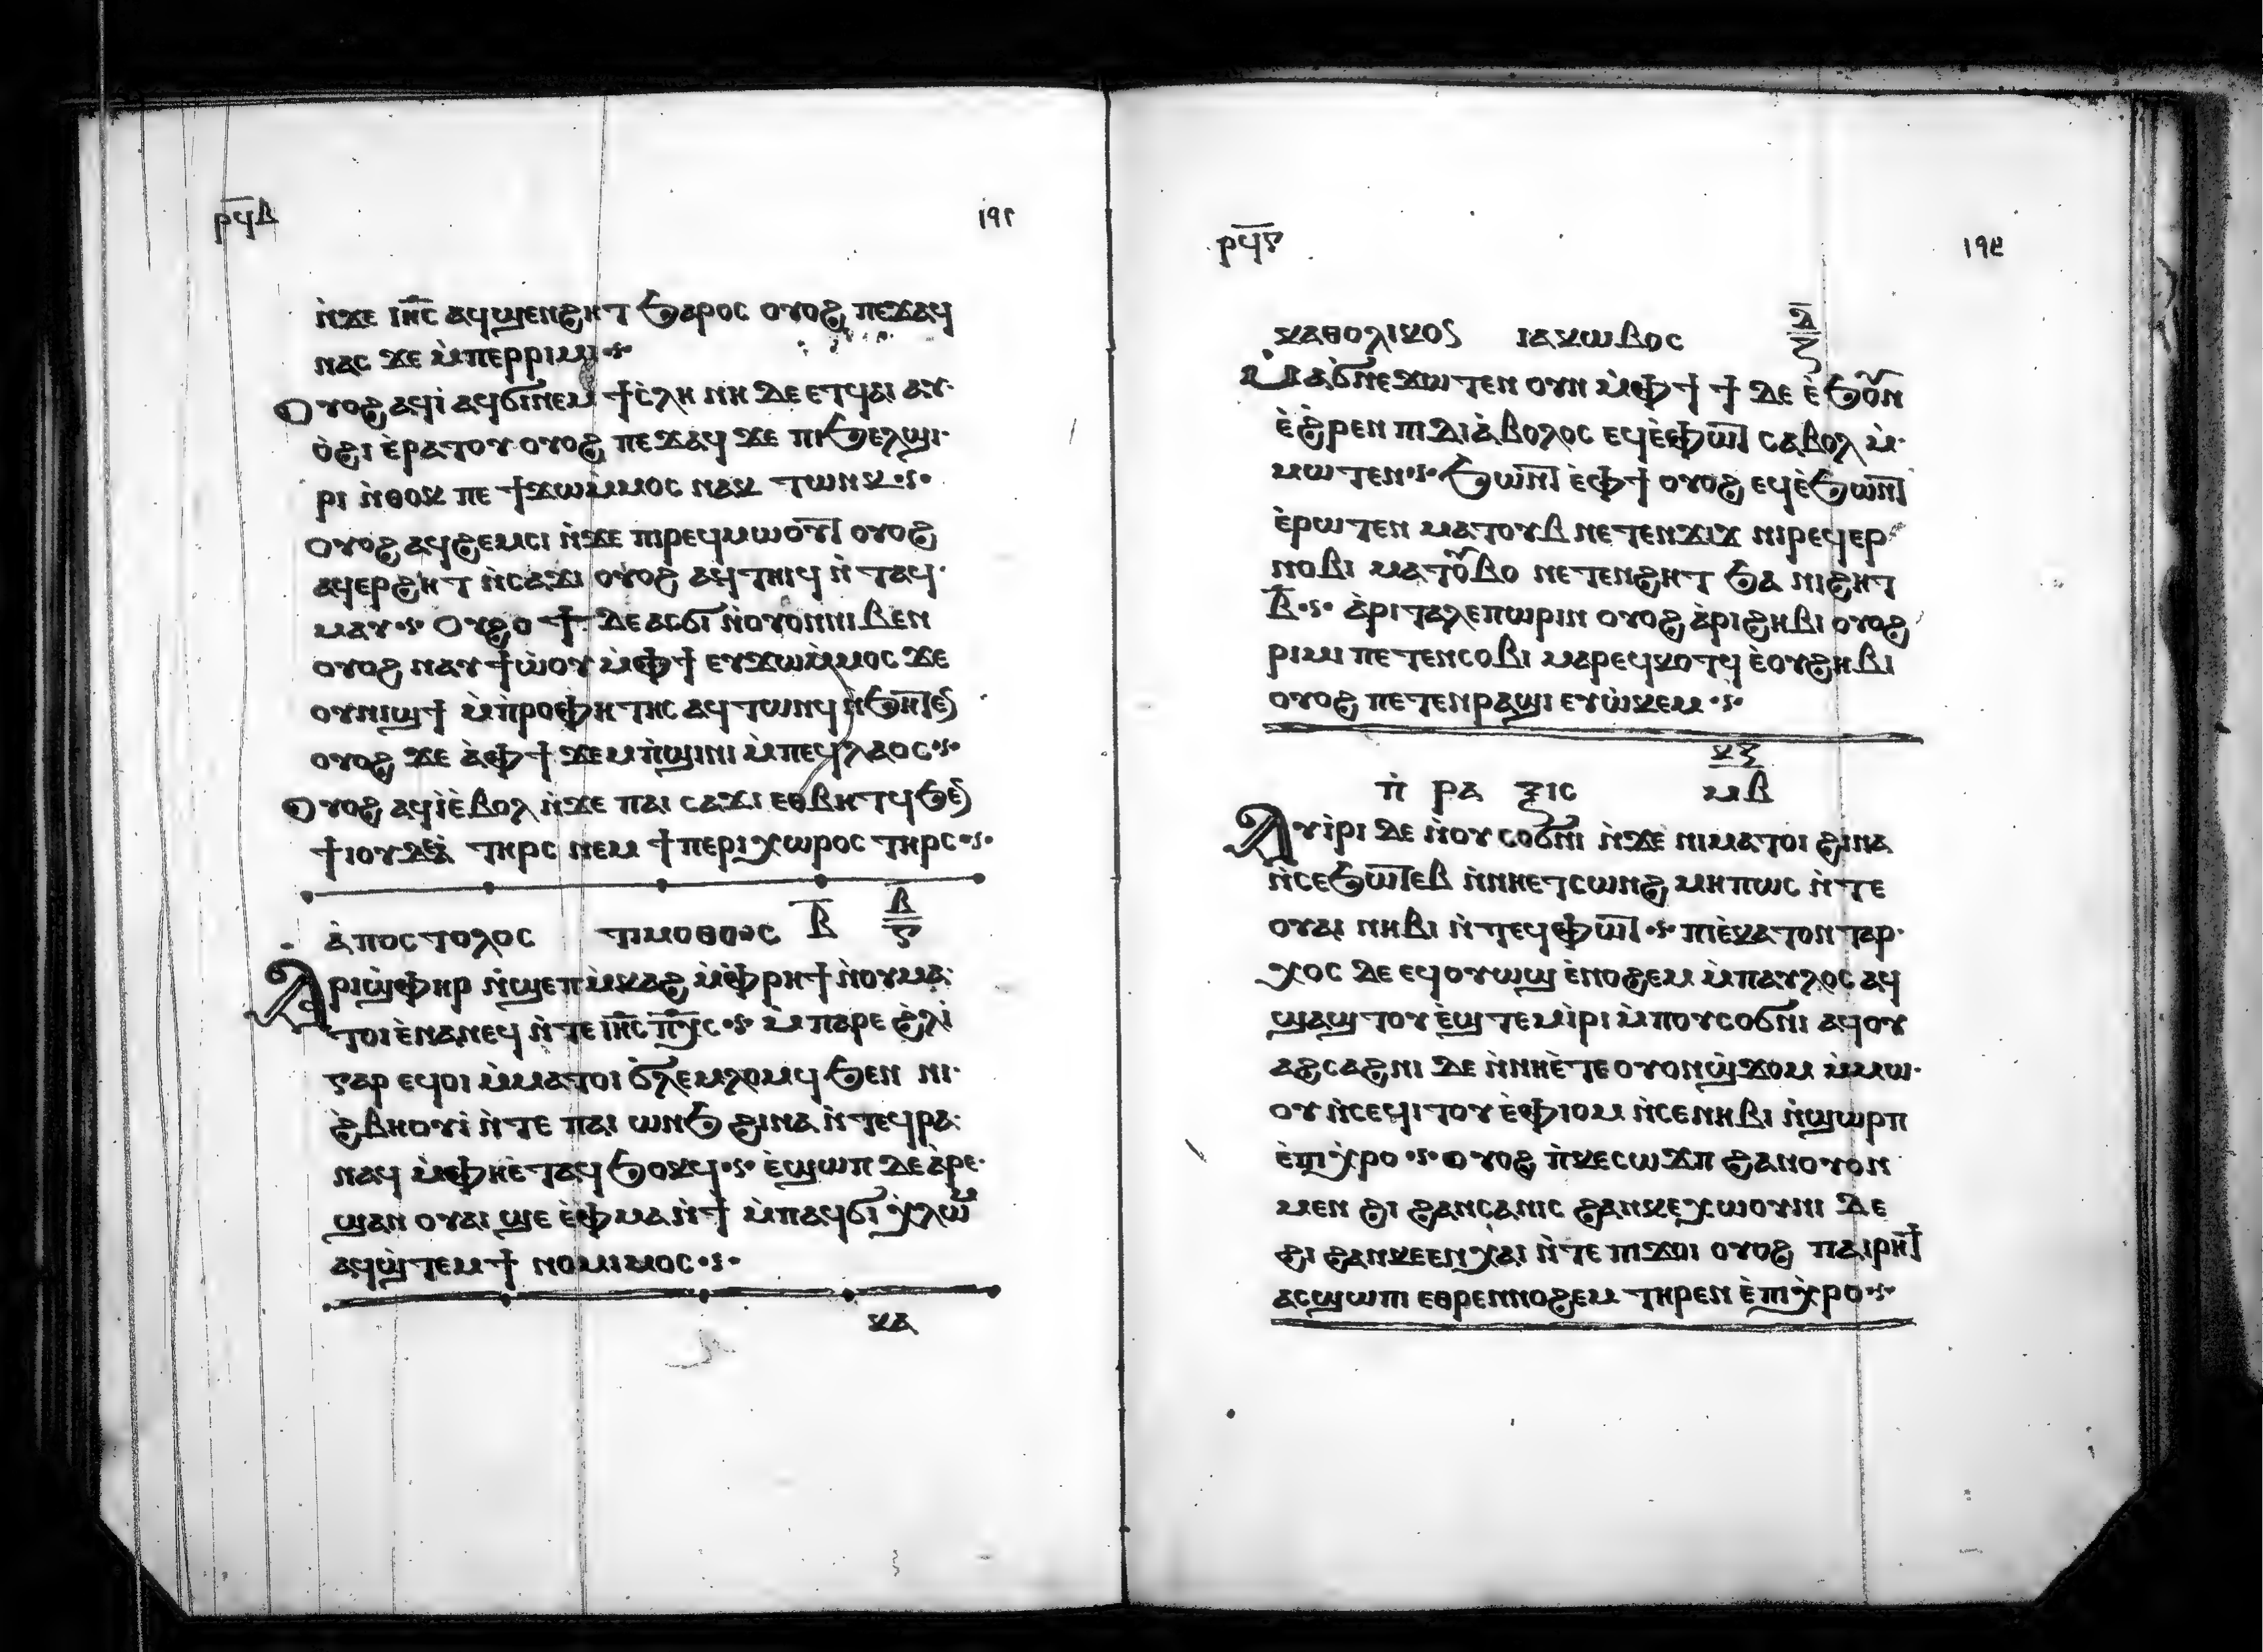 ⲣϥⲇ ١٩٢
ⲛ̀ϫⲉ ⲓⲏ̅ⲥ̅ ⲁϥϣⲉⲛϩⲏⲧ ϧⲁⲣⲟⲥ ⲟⲩⲟϩ ⲡⲉϫⲁϥ
ⲛⲁⲥ ϫⲉ ⲙ̀ⲡⲉⲣⲣⲓⲙⲓ
ⲟⲩⲟϩ ⲁϥⲓ̀ ⲁϥϭⲓⲛⲉⲙ ϯⲥ̀ⲗⲏ ⲛⲏ ⲇⲉ ⲉⲧϥⲁⲓ ⲁⲩ
ⲟ̀ϩⲓ ⲉ̀ⲣⲁⲧⲟⲩ ⲟⲩⲟϩ ⲡⲉϫⲁϥ ϫⲉ ⲡⲓϧⲉⲗϣⲓ
ⲣⲓ ⲛ̀ⲑⲟⲕ ⲡⲉ ϯϫⲱⲙ̀ⲙⲟⲥ ⲛⲁⲕ ⲧⲱⲛⲕ
ⲟⲩⲟϩ ⲁϥϩⲉⲙⲥⲓ ⲛ̀ϫⲉ ⲡⲓⲣⲉϥⲙⲱⲟⲩⲧ ⲟⲩⲟϩ
ⲁϥⲉⲣϩⲏⲧ ⲛ̀ⲥⲁϫⲓ ⲟⲩⲟϩ ⲁϥⲧⲏⲓϥ ⲛ̀ⲧⲁϥ
ⲙⲁⲩ ⲟⲩϩⲟϯ ⲇⲉ ⲁⲥϭⲓ ⲛ̀ⲟⲩⲟⲛⲛⲓⲃⲉⲛ
ⲟⲩⲟϩ ⲛⲁⲩϯⲱ̀ⲟⲩ ⲙ̀ⲫϯ ⲉⲩϫⲱⲙ̀ⲙⲟⲥ ϫⲉ
ⲟⲩⲛⲓϣϯ ⲙ̀ⲡ̀ⲣⲟⲫⲏⲧⲏⲥ ⲁϥⲧⲱⲛϥ ⲛ̀ϧⲏⲧⲉⲛ
ⲟⲩⲟϩ ϫⲉ ⲁ̀ⲫϯ ϫⲉⲙⲡ̀ϣⲓⲛⲓ ⲙ̀ⲡⲉϥⲗⲁⲟⲥ
ⲟⲩⲟϩ ⲁϥⲓ̀ⲉ̀ⲃⲟⲗ ⲛ̀ϫⲉ ⲡⲁⲓ ⲥⲁϫⲓ ⲉⲑⲃⲏⲧϥ ϧⲉⲛ
ϯⲓⲟⲩⲇⲉⲁ̀ ⲧⲏⲣⲥ ⲛⲉⲙ ϯⲡⲉⲣⲓⲭⲱⲣⲟⲥ ⲧⲏⲣⲥ
ⲁ̀ⲡⲟⲥⲧⲟⲗⲟⲥ ⲧⲓⲙⲟⲑⲟⲩⲥ ⲃ̅ ⲃ̅ ⲋ
ⲁⲣⲓϣ̀ⲫⲏⲣ ⲛ̀ϣⲉⲡⲙ̀ⲕⲁϩ ⲙ̀ⲫⲣⲏϯ ⲛ̀ⲟⲩⲙⲁ
ⲧⲟⲓ ⲉ̀ⲛⲁⲛⲉϥ ⲛ̀ⲧⲉ ⲓⲏ̅ⲥ̅ ⲡⲭ̅ⲥ̅ ⲙ̀ⲡⲁⲣⲉ ϩ̀ⲗⲓ
ⲅⲁⲣ ⲉϥⲟⲓ ⲙ̀ⲙⲁⲧⲟⲓ ϭ̀ⲗⲉⲙⲗⲟⲙϥ ϧⲉⲛ ⲛⲓ
ϩ̀ⲃⲏⲟⲩⲓ̀ ⲛ̀ⲧⲉ ⲡⲁⲓ ⲱⲛϧ ϩⲓⲛⲁ ⲛ̀ⲧⲉϥⲣⲁ
ⲛⲁϥ ⲙ̀ⲫⲏⲉ̀ⲧⲁϥϧⲟⲕϥ ⲉ̀ϣⲱⲡ ⲇⲉ ⲁ̀ⲣⲉ
ϣⲁⲛ ⲟⲩⲁⲓ ϣⲉ ⲉ̀ⲫⲙⲁⲛ̀ϯ ⲙ̀ⲡⲁϥϭⲓ ⲭ̀ⲗⲱⲙ
ⲁϥϣ̀ⲧⲉⲙϯ ⲛⲟⲙⲓⲙⲟⲥ
ⲕⲁ
ⲣϥⲋ ١٩٤
ⲕⲁⲑⲟⲗⲓⲕⲟⲥ ⲓⲁⲕⲱⲃⲟⲥ ⲇ̅ ⲍ
ⲙ̀ⲁϭⲛⲉϫⲱⲧⲉⲛ ⲟⲩⲛ ⲙ̀ⲫϯ ϯ ⲇⲉ ⲉ̀ϧⲟⲩⲛ
ⲉ̀ϩ̀ⲣⲉⲛ ⲡⲓⲇⲓⲁ̀ⲃⲟⲗⲟⲥ ⲉϥⲉ̀ⲫⲱⲧ ⲥⲁⲃⲟⲗ ⲙ̀
ⲙⲱⲧⲉⲛ ϧⲱⲛⲧ ⲉ̀ⲫϯ ⲟⲩⲟϩ ⲉϥⲉ̀ϧⲱⲛⲧ
ⲉ̀ⲣⲱⲧⲉⲛ ⲙⲁⲧⲟⲩⲃ ⲛⲉⲧⲉⲛϫⲓϫ ⲛⲓⲣⲉϥⲉⲣ
ⲛⲟⲃⲓ ⲙⲁⲧⲟⲩⲃⲟ ⲛⲉⲧⲉⲛϩⲏⲧ ϧⲁ ⲛⲓϩⲏⲧ
ⲃ̅ ⲁ̀ⲣⲓⲧⲁⲗⲉⲡⲱⲣⲓⲛ ⲟⲩⲟϩ ⲁ̀ⲣⲓϩⲏⲃⲓ ⲟⲩⲟϩ
ⲣⲓⲙⲓ ⲡⲉⲧⲉⲛⲥⲟⲃⲓ ⲙⲁⲣⲉϥⲕⲟⲧϥ ⲉ̀ⲟⲩϩⲏⲃⲓ
ⲟⲩⲟϩ ⲡⲉⲧⲉⲛⲣⲁϣⲓ ⲉⲩⲱ̀ⲕⲉⲙ
ⲕⲍ
ⲡ̀ ⲣⲁ ⲝⲓⲥ ⲙⲃ
ⲁⲩⲓ̀ⲣⲓ ⲇⲉ ⲛ̀ⲟⲩⲥⲟϭⲛⲓ ⲛ̀ϫⲉ ⲛⲓⲙⲁⲧⲟⲓ ϩⲓⲛⲁ
ⲛ̀ⲥⲉϧⲱⲧⲉⲃ ⲛ̀ⲛⲏⲉⲧⲥⲱⲛϩ ⲙⲏⲡⲱⲥ ⲛ̀ⲧⲉ
ⲟⲩⲁⲓ ⲛⲏⲃⲓ ⲛ̀ⲧⲉϥⲫⲱⲧ ⲡⲓⲉ̀ⲕⲁⲧⲟⲛⲧⲁⲣ
ⲭⲟⲥ ⲇⲉ ⲉϥⲟⲩⲱϣ ⲉ̀ⲛⲟϩⲉⲙ ⲙ̀ⲡⲁⲩⲗⲟⲥ ⲁϥ
ϣⲁϣⲧⲟⲩ ⲉ̀ϣⲧⲉⲙⲓ̀ⲣⲓ ⲙ̀ⲡⲟⲩⲥⲟϭⲛⲓ ⲁϥⲟⲩ
ⲁϩⲥⲁϩⲛⲓ ⲇⲉ ⲛ̀ⲛⲏⲉ̀ⲧⲉ ⲟⲩⲟⲛϣ̀ϫⲟⲙ ⲙ̀ⲙⲱ
ⲟⲩ ⲛ̀ⲥⲉϥⲓⲧⲟⲩ ⲉ̀ⲫⲓⲟⲙ ⲛ̀ⲥⲉⲛⲏⲃⲓ ⲛ̀ϣⲱⲣⲡ
ⲉ̀ⲡⲓⲭ̀ⲣⲟ ⲟⲩⲟϩ ⲡ̀ⲕⲉⲥⲱϫⲡ ϩⲁⲛⲟⲩⲟⲛ
ⲙⲉⲛ ϩⲓ ϩⲁⲛⲥⲁⲛⲓⲥ ϩⲁⲛⲕⲉⲭⲱⲟⲩⲛⲓ ⲇⲉ
ϩⲓ ϩⲁⲛⲕⲉⲉⲛⲭⲁⲓ ⲛ̀ⲧⲉ ⲡⲓϫⲟⲓ ⲟⲩⲟϩ ⲡⲁⲓⲣⲏϯ
ⲁⲥϣⲱⲡⲓ ⲉⲑⲣⲉⲛⲛⲟϩⲉⲙ ⲧⲏⲣⲉⲛ ⲉ̀ⲡⲓⲭ̀ⲣⲟ